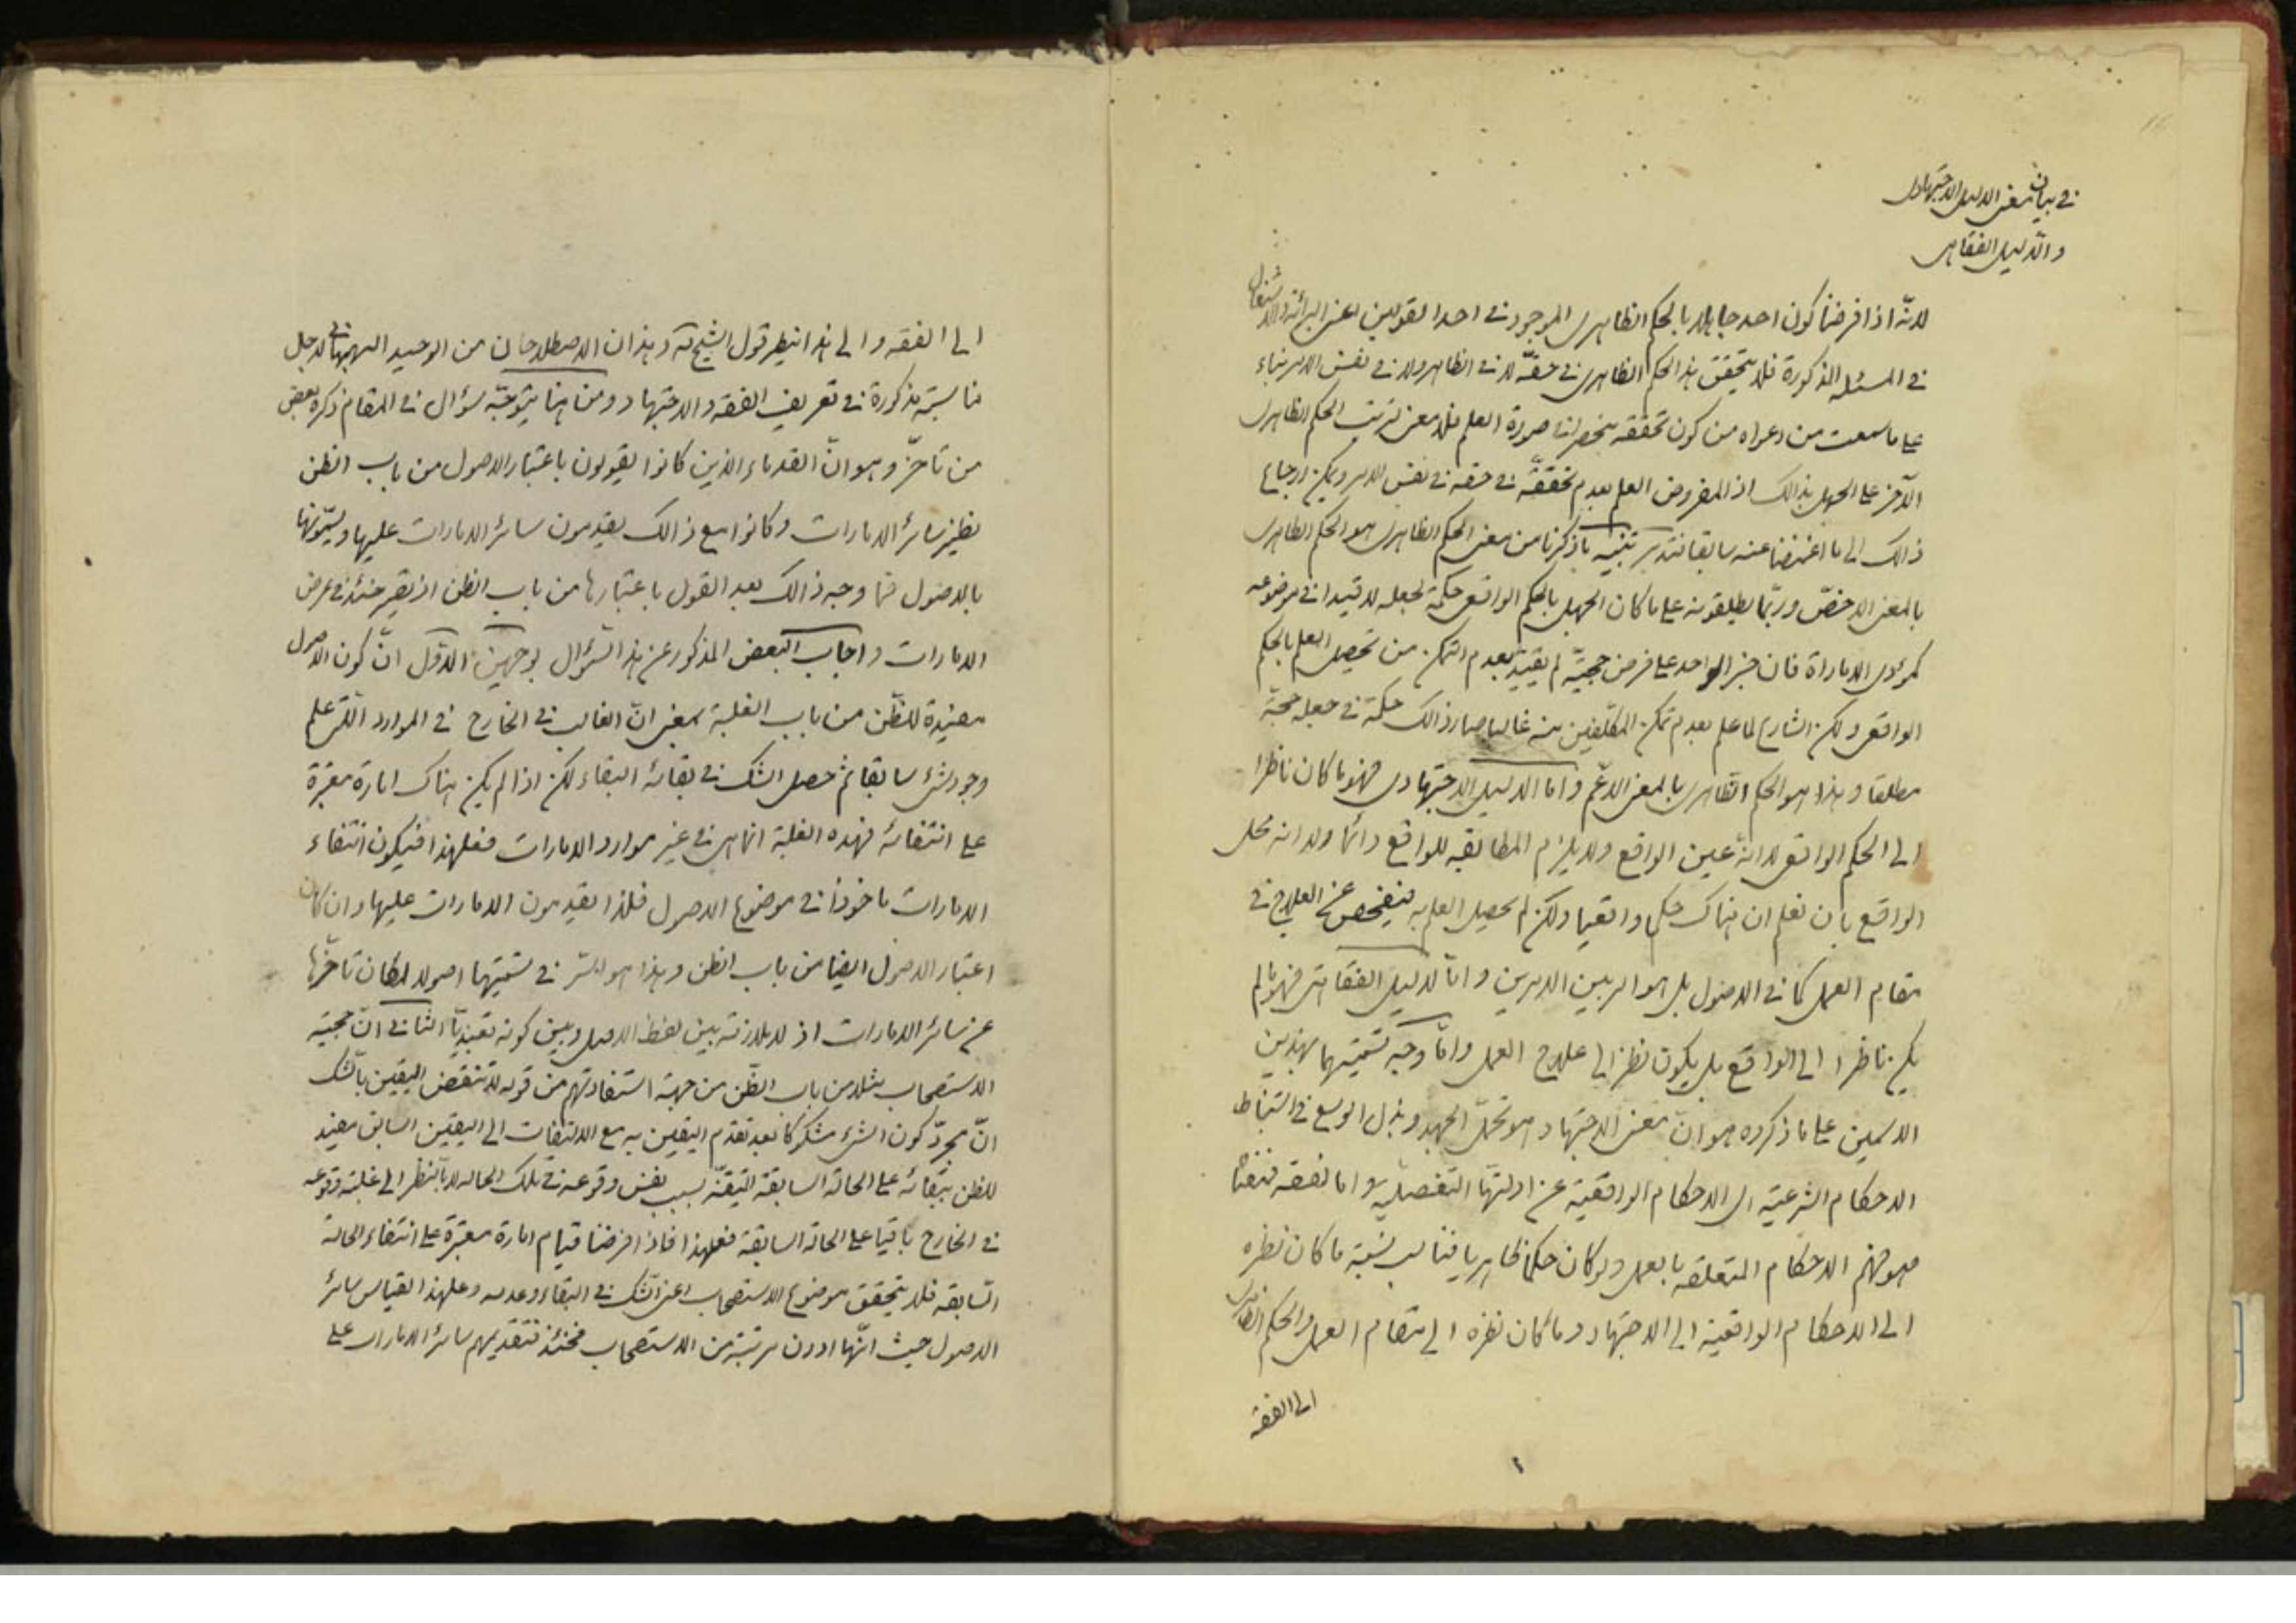 في بيان معنى الدليل الاجتهادي
والدليل الفقاهتي
لانّه اذا فرضنا كون احد جاهلا بالحكم الظاهري الموجود في احد القولين اعني البرائة والاشتغال
في المسئلة المذكورة فلا يتحقق هذا الحكم الظاهري في حقّه لا في الظاهر ولا في نفس الامر بناء
على ما سمعت من دعواه من كون تحققه منحصرا في صورة العلم فلا معنى لترتب الحكم الظاهري
الآخر على الجهل بذالك اذ المفروض العلم بعدم تحققه في حقه في نفس الامر ويمكن ارجاع
ذالك الى ما اغمضنا عنه سابقا فتدبر تنبيه ما ذكرنا من معنى الحكم الظاهري هو الحكم الظاهري
بالمعنى الاخصّ وربّما يطلقونه على ما كان الجهل بالحكم الواقعي حكمة لجعله لا قيدا في موضوعه
كمؤدى الاماراة فان خبر الواحد على فرض حجيّته لم يقيّد بعدم التمكن من تحصيل العلم بالحكم
الواقعي ولكن الشارع لما علم بعدم تمكن المكلّفين منه غالبا صار ذالك حكمة في جعله حجّة
مطلقا وهذا هو الحكم الظاهري بالمعنى الاعم واما الدليل الاجتهادي فهو ما كان ناظرا
الى الحكم الواقعي لا انّه عين الواقع ولا يلزم المطابقه للواقع دائما ولا انه محل
الواقع بان نعلم ان هناك حكما واقعيا ولكن لم يحصل العلم به فيتفحص عن العلاج في
مقام العمل كما في الاصول بل هو امر بين الامرين وامّا لدليل الفقاهتي فهو ما لم
يكن ناظرا الى الواقع بل يكون نظره الى علاج العمل وامّا وجه تسميتهما بهذين
الاسمين على ما ذكروه هو انّ معنى الاجتهاد هو تحمّل الجهد وبذل الوسع في استنباط
الاحكام الشرعيّة اى الاحكام الواقعيّة عن ادلتها التفصيليّة واما لفقه فمعناه
هو فهم الاحكام المتعلقه بالعمل ولو كان حكما ظاهريا فناسب نسبة ما كان نظره
الى الاحكام الواقعية الى الاجتهاد وما كان نظره الى مقام العمل والحكم الظاهري
الى الفقه
الى الفقه والى هذا ينظر قول الشيخ ره وهذان الاصطلاحان من الوحيد البهبهاني لاجل
مناسبة مذكورة في تعريف الفقه والاجتهاد ومن هنا يتوجّه سؤال في المقام ذكره بعض
من تاخّر وهو انّ القدماء الذين كانوا يقولون باعتبار الاصول من باب الظن
نظير سائر الامارات وكانوا مع ذالك يقدمون سائر الامارات عليها ويسمّونها
بالاصول فما وجه ذالك بعد القول باعتبارها من باب الظن اذ يصير حينئذ في عرض
الامارات واجاب البعض المذكور عن هذا السّؤال بوجهين الاوّل انّ كون الاصول
مفيدة للظّن من باب الغلبة بمعنى انّ الغالب في الخارج في الموارد الّتي علم
وجود شئ سابقا ثم حصل الشك في بقائه البقاء لكن اذا لم يكن هناك امارة معتبرة
على انتفائه فهذه الغلبة انما هي في غير موارد الامارات فعلهذا فيكون انتفاء
الامارات ماخوذا في موضوع الاصول فلذا يقدمون الامارات عليها وان كان
اعتبار الاصول ايضا من باب الظن وهذا هو السّر في تسميتها اصولا لمكان تاخّرها
عن سائر الامارات اذ لا ملازمة بين لفظ الاصل وبين كونه تعبّديّا الثاني انّ حجيّة
الاستصحاب مثلا من باب الظّن من جهة استفادتهم من قوله لا تنقض اليقين بالشك
انّ مجرّد كون الشئ مشكوكا بعد تقدم اليقين به مع الالتفات الى اليقين السابق مفيد
للظن ببقائه على الحالة السابقة المتيقنّة بسبب نفس وقوعه في تلك الحالة لا بالنظر الى غلبة وقوعه
في الخارج باقيا على الحالة السابقة فعلهذا فاذا فرضنا قيام امارة معتبرة على انتفاء الحالة
السّابقه فلا يتحقق موضوع الاستصحاب اعني الشك في البقاء وعدمه وعلهذا القياس سائر
الاصول حيث انّها ادون مرتبة من الاستصحاب فحينئذ فتقديمهم سائر الامارات على